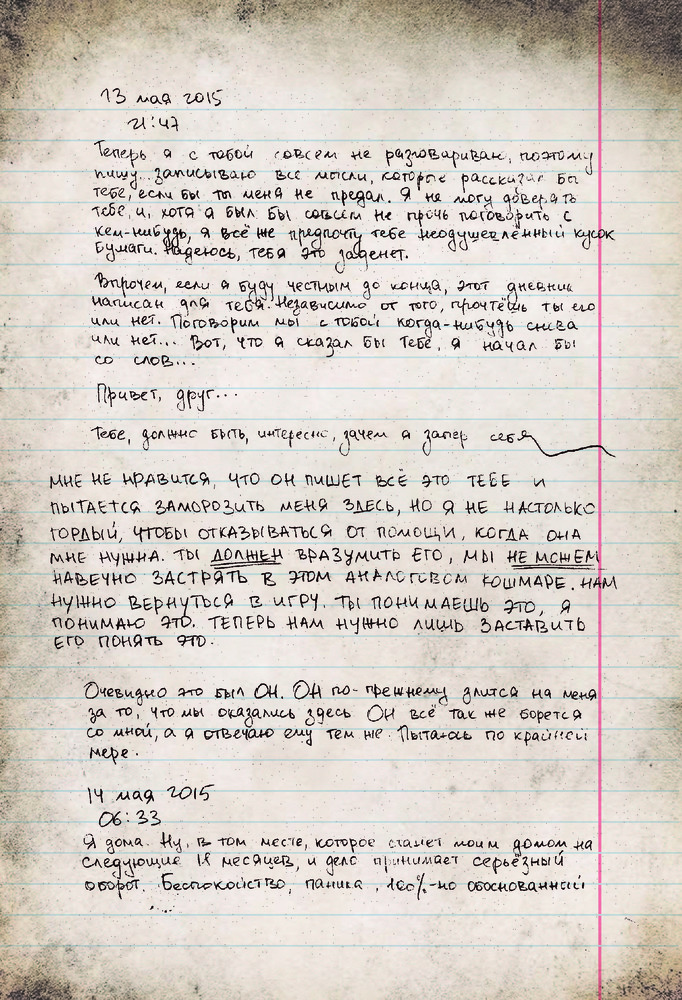 13 мая 2015
21:47
Теперь я с тобой совсем не разговариваю, поэтому
пишу... записываю все мысли, которые рассказал бы
тебе, если бы ты меня не предал. Я не могу доверять
тебе, и, хотя я был бы совсем не прочь поговорить с
кем-нибудь, я всё же предпочту тебе неодушевлённый кусок
бумаги. Надеюсь, тебя это заденет.
Впрочем, если я буду честным до конца, этот дневник
написан для тебя. Независимо от того, прочтёшь ты его
или нет. Поговорим мы с тобой когда-нибудь снова
или нет... Вот, что я сказал бы тебе, я начал бы
со слов...
Привет, друг...
Тебе, должно быть, интересно, зачем я запер себя
МНЕ НЕ НРАВИТСЯ, ЧТО ОН ПИШЕТ ВСЁ ЭТО ТЕБЕ И
ПЫТАЕТСЯ ЗАМОРОЗИТЬ МЕНЯ ЗДЕСЬ, НО Я НЕ НАСТОЛЬКО
ГОРДЫЙ, ЧТОБЫ ОТКАЗЫВАТЬСЯ ОТ ПОМОЩИ, КОГДА ОНА
МНЕ НУЖНА. ТЫ ДОЛЖЕН ВРАЗУМИТЬ ЕГО, МЫ НЕ МОЖЕМ
НАВЕЧНО ЗАСТРЯТЬ В ЭТОМ АНАЛОГОВОМ КОШМАРЕ. НАМ
НУЖНО ВЕРНУТЬСЯ В ИГРУ. ТЫ ПОНИМАЕШЬ ЭТО, Я
ПОНИМАЮ ЭТО. ТЕПЕРЬ НАМ НУЖНО ЛИШЬ ЗАСТАВИТЬ
ЕГО ПОНЯТЬ ЭТО.
Очевидно это был ОН. ОН по-прежнему злится на меня
за то, что мы оказались здесь ОН всё так же борется
со мной, а я отвечаю ему тем же. Пытаюсь по крайней
мере.
14 мая 2015
06:33
Я дома. Ну, в том месте, которое станет моим домом на
следующие 18 месяцев, и дело принимает серьёзный
оборот. Беспокойство, паника, 100%-но обоснованный
...